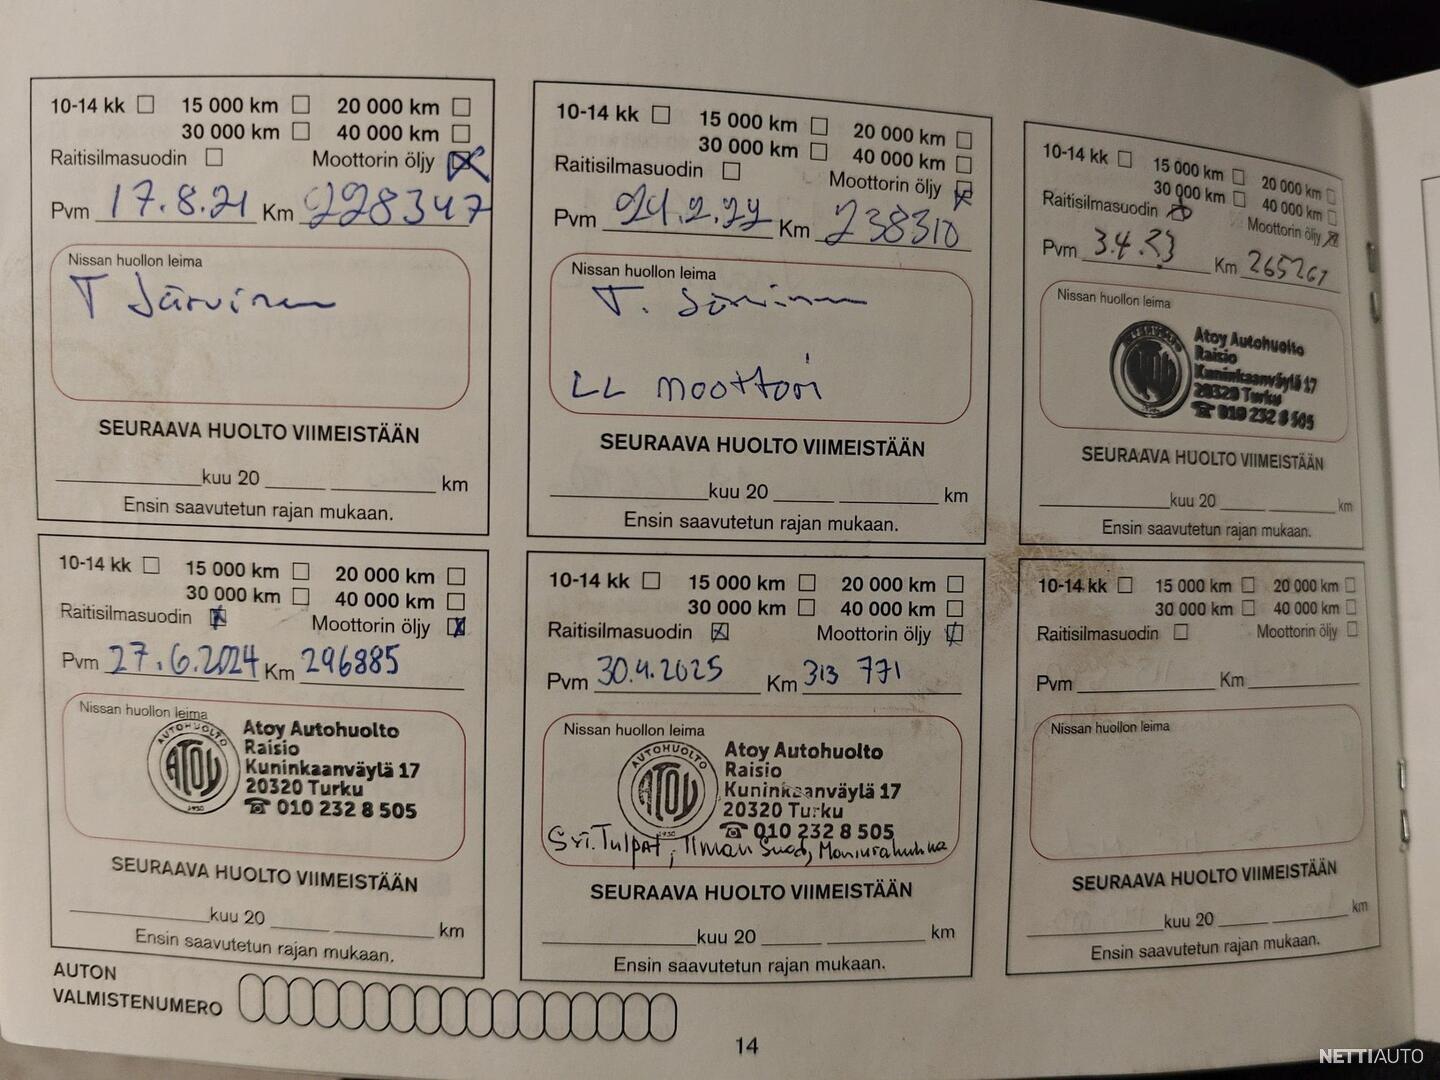 10-14 kk 15 000 km 20 000 km
30 000 km 40 000 km
Raitisilmasuodin Moottorin öljy
Pvm 17.8.21 Km 228347
Nissan huollon leima
T Järvinen
SEURAAVA HUOLTO VIIMEISTÄÄN
kuu 20 km
Ensin saavutetun rajan mukaan.
10-14 kk 15 000 km 20 000 km
30 000 km 40 000 km
Raitisilmasuodin Moottorin öljy
Pvm 24.2.22 Km 238310
Nissan huollon leima
T. Järvinen
LL moottori
SEURAAVA HUOLTO VIIMEISTÄÄN
kuu 20 km
Ensin saavutetun rajan mukaan.
10-14 kk 15 000 km 20 000 km
30 000 km 40 000 km
Raitisilmasuodin Moottorin öljy
Pvm 3.4.23 Km 265261
Nissan huollon leima
Atoy Autohuolto
Raisio
Kuninkaanväylä 17
20320 Turku
☎ 010 232 8 505
SEURAAVA HUOLTO VIIMEISTÄÄN
kuu 20 km
Ensin saavutetun rajan mukaan.
10-14 kk 15 000 km 20 000 km
30 000 km 40 000 km
Raitisilmasuodin Moottorin öljy
Pvm 27.6.2024 Km 296885
Nissan huollon leima
AUTOHUOLTO
ATOY
1930
Atoy Autohuolto
Raisio
Kuninkaanväylä 17
20320 Turku
☎ 010 232 8 505
SEURAAVA HUOLTO VIIMEISTÄÄN
kuu 20 km
Ensin saavutetun rajan mukaan.
10-14 kk 15 000 km 20 000 km
30 000 km 40 000 km
Raitisilmasuodin Moottorin öljy
Pvm 30.4.2025 Km 313 771
Nissan huollon leima
AUTOHUOLTO
ATOY
1930
Atoy Autohuolto
Raisio
Kuninkaanväylä 17
20320 Turku
☎ 010 232 8 505
Tulpat, Ilman Suod, Moniurahihna
SEURAAVA HUOLTO VIIMEISTÄÄN
kuu 20 km
Ensin saavutetun rajan mukaan.
10-14 kk 15 000 km 20 000 km
30 000 km 40 000 km
Raitisilmasuodin Moottorin öljy
Pvm Km
Nissan huollon leima
SEURAAVA HUOLTO VIIMEISTÄÄN
kuu 20 km
Ensin saavutetun rajan mukaan.
AUTON
VALMISTENUMERO
14
NETTIAUTO